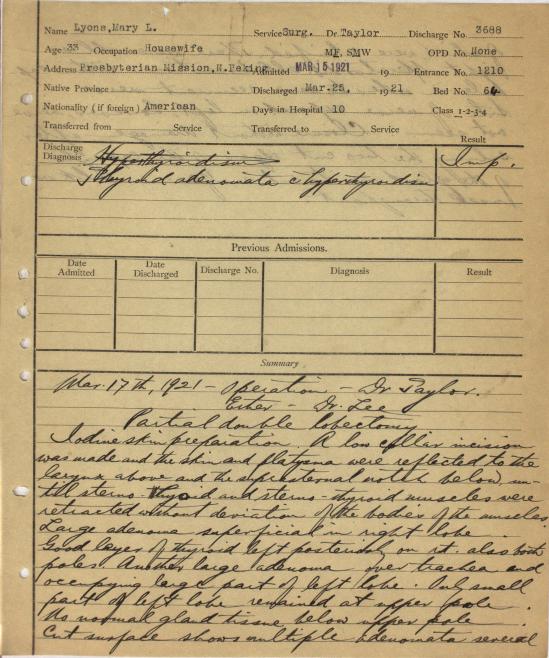 Name Lyons, Mary L. Service Surg. Dr. Taylor Discharge No. 3688
Age 33 Occupation Housewife MF, SMW OPD No. None
Address Presbyterian Mission, N. Peking Admitted MAR 15 1921 19 Entrance No. 1210
Native Province Discharged Mar. 25, 19 21 Bed No. 64
Nationality (if foreign) American Days in Hospital 10 Class 1-2-3-4
Transferred from Service Transferred to Service
Result
Discharge Diagnosis Hyperthyroidism Imp.
Thyroid adenomata c hyperthyroidism
Previous Admissions.
Date Admitted Date Discharged Discharge No. Diagnosis Result
Summary
Mar. 17th, 1921 - Operation - Dr Taylor.
Ether - Dr. Lee
Partial double lobectomy
Iodine skin preparation. A low collar incision
was made and the skin and platysma were reflected to the
larynx above and the suprasternal notch below, un-
till sterno-thyroid and sterno-thyroid muscles were
retracted without deviation of the bodies of the muscles.
Large adenoma superficial in right lobe.
Good layer of thyroid left posteriorly on it. also both
poles. Another large adenoma over trachea and
occupying large part of left lobe. Only small
part of left lobe remained at upper pole.
No normal gland tissue below upper pole.
Cut surface shows multiple adenomata several